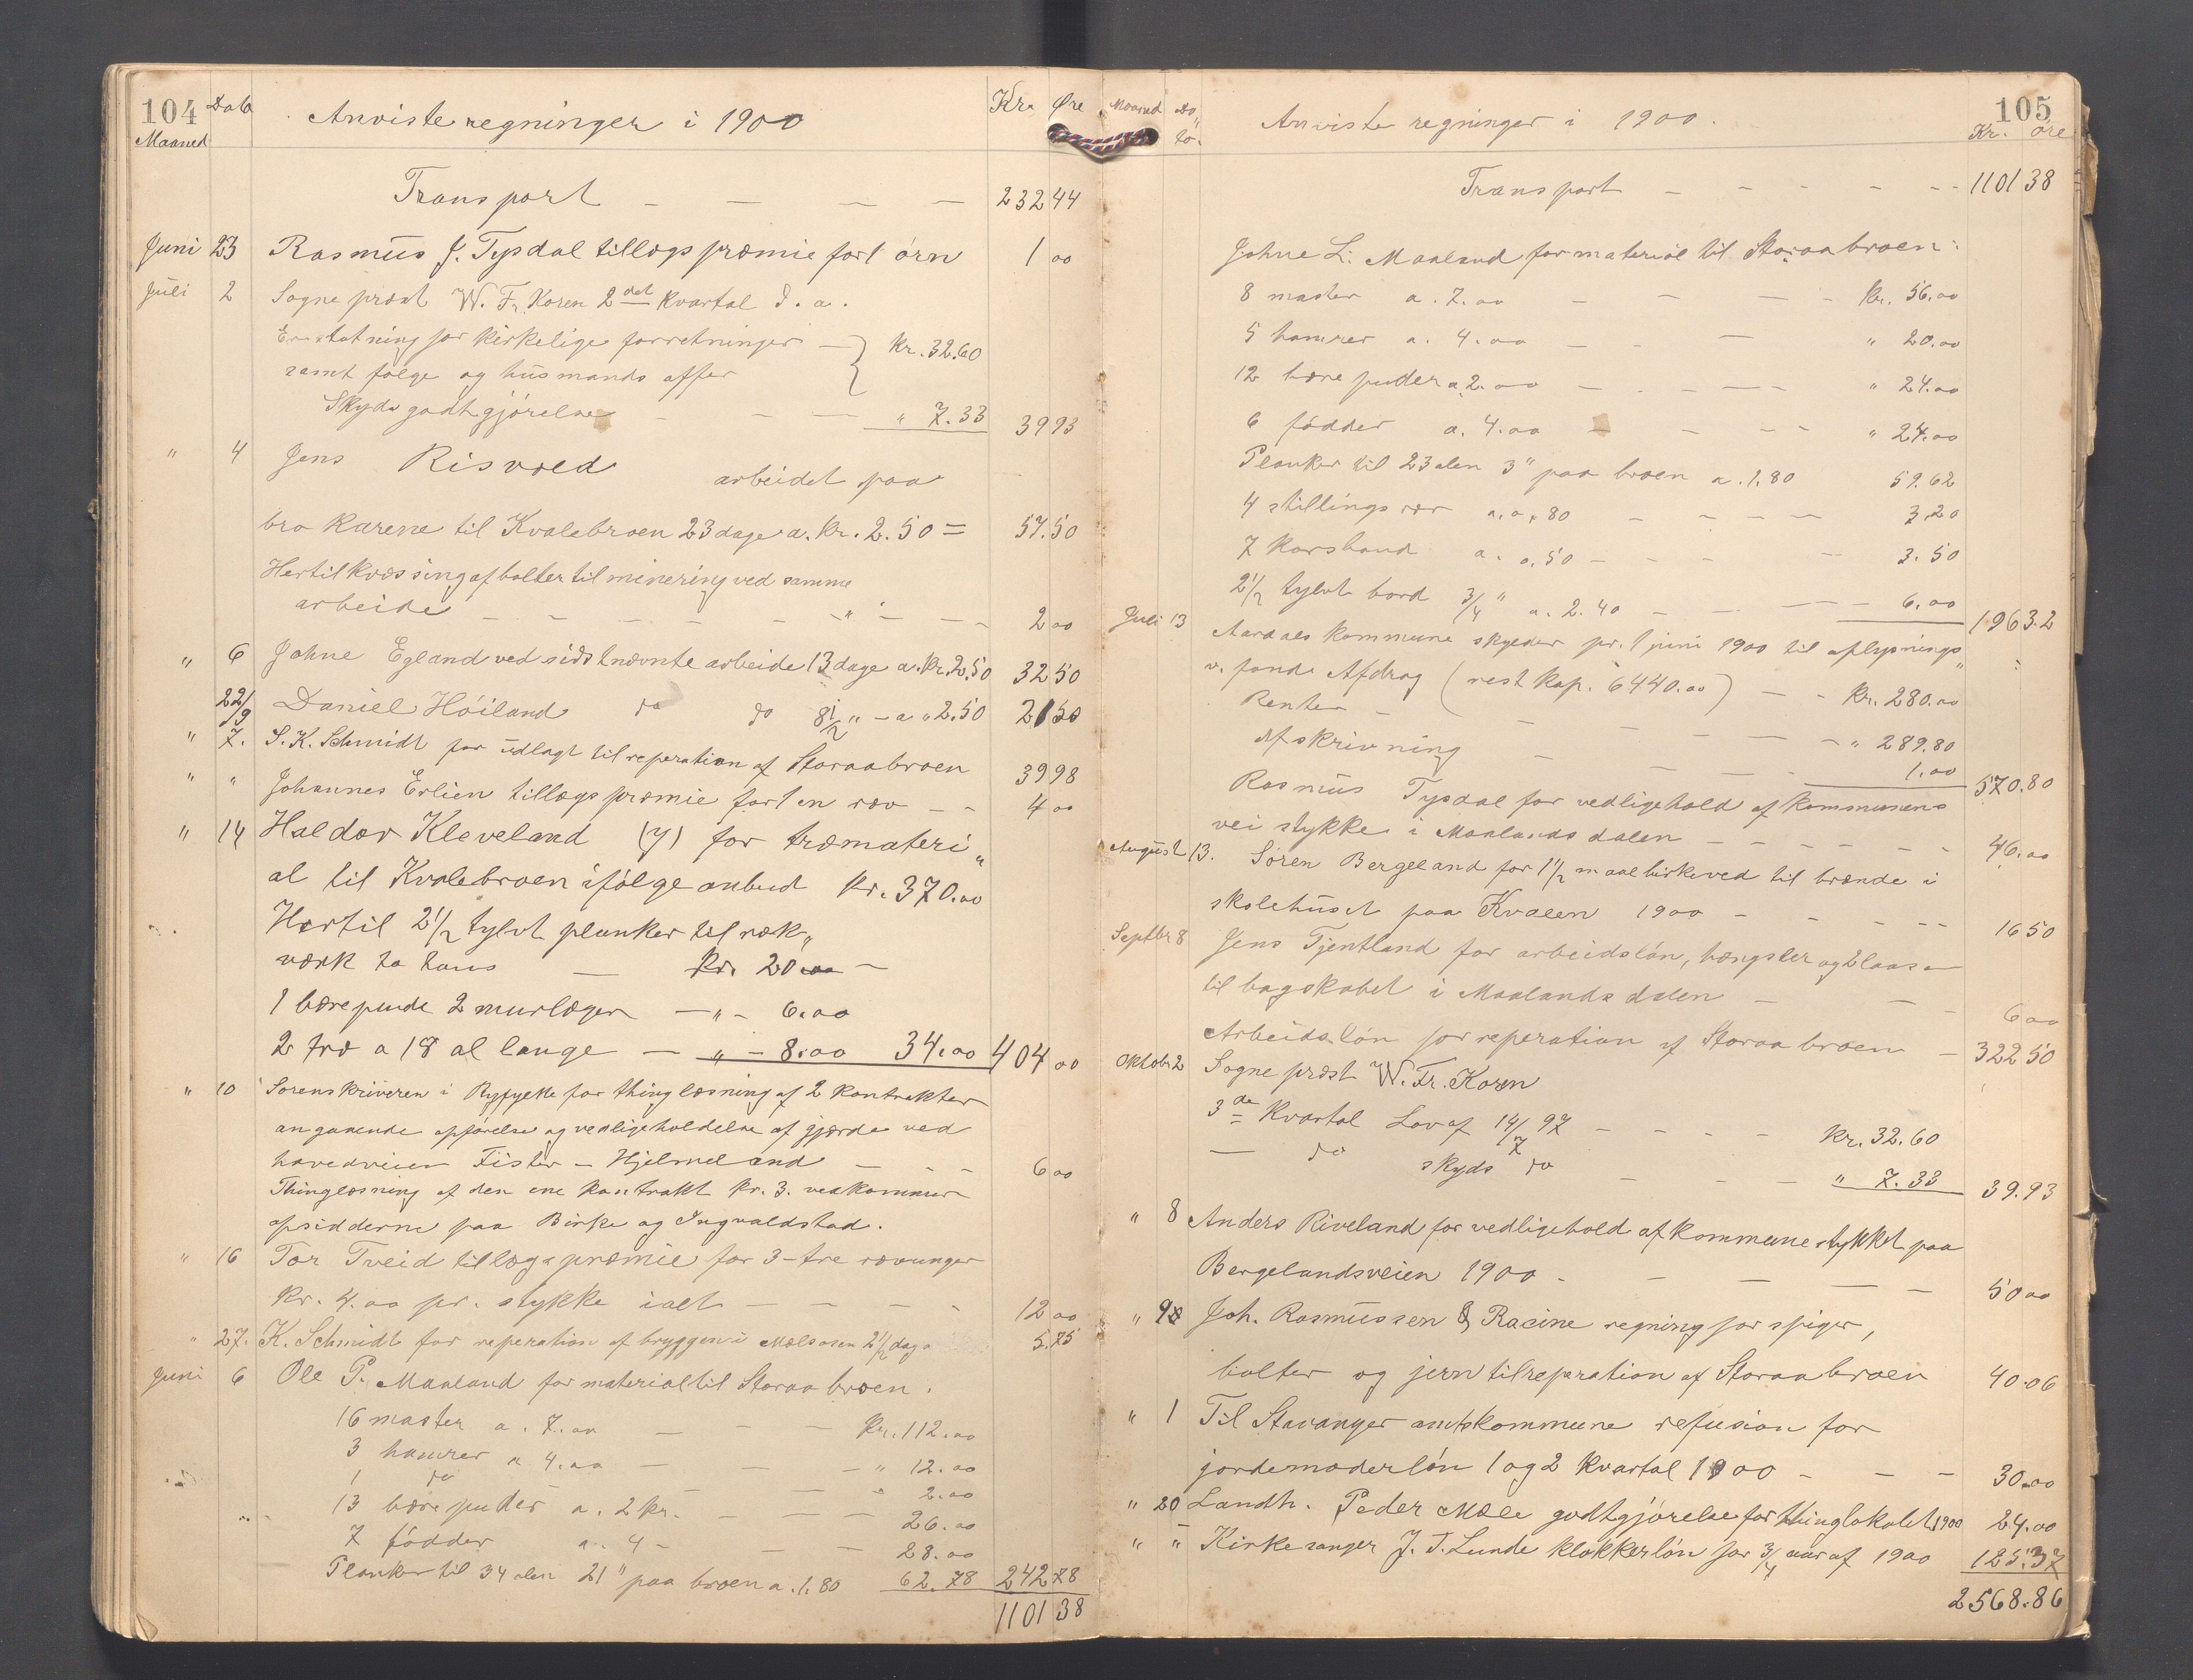 104 Dato Anviste regninger i 1900 Kr. Øre
Maaned
Transport - - - - 232 44
Juni 23 Rasmus J. Tysdal tillægspræmie for 1 ørn 1 00
Juli 2 Sogneprest W. Fr. Koren 2det Kvartal d. a.
Erstatning for kirkelige forretninger - Kr. 32.60
samt følge og husmands offer
Skydsgodtgjørelse - - - " 7.33 39 93
" 4 Jens Risvold arbeidet paa
bro karene til Kvalebroen 23 dage a. Kr. 2.50 = 57.50
Hertil kvæssing af bolter til minering ved samme
arbeide - - - - - " - - - 2 00
" 6 Johne Egland ved sidstnævnte arbeide 13 dage a. Kr. 2.50 32 50
22/9 Daniel Høiland do do 8 1/2 " - a " 2.50 21 50
" 7. S. K. Schmidt for udlagt til reperation af Storaabroen 39 98
" " Johannes Erlien tillægspræmie for 1 en ræv - - 4 00
" 14 Haldor Kleveland (7) for træmateri„
al til Kvalebroen ifølge anbud Kr. 370.00
Hertil 2 1/2 tylvt planker til ræk„
værk - Kr. 20.00 -
1 bærepude 2 murlæger - " - 6.00
2 træ a 18 al lange - " - 8.00 34.00 404 00
" 10 Sorenskriveren i Ryfylke for thinglæsning af 2 kontrakter
angaaende opførelse og vedligeholdelse af gjærde ved
hovedveien Fister - Hjelmeland - - - 6 00
Thinglæsning af den ene kontrakt kr. 3. vedkommer
opsidderne paa Birke og Ingvaldstad.
" 16 Tor Tveid tillægspræmie for 3-tre rævunger
Kr. 4.00 pr. stykke ialt - - - - 12 00
" 27. K. Schmidt for reperation af bryggen i Mælsosen 2 1/2 dag 5.75
Juni 6 Ole P. Maaland for material til Storaabroen.
16 master a. 7.00 - - - Kr. 112.00
3 hamrer a 4.00 - - - " 12.00
1 do - " 2.00
13 bærepuder a. 2 kr. - - - 26.00
7 fødder a. 4 - - - 28.00
Planker til 34 alen 21" paa broen a. 1.80 62.78 242 78
1101 38
Maaned Dato. Anviste regninger i 1900. 105
Kr. øre
Transport - - - - - - 1101 38
Johne L. Maaland for material til Storaabroen:
8 master a. 7.00 - - - - Kr. 56.00
5 hamrer a. 4.00 - - - " 20.00
12 bære puder a 2.00 - - - - " 24.00
6 fødder a. 4.00 - - - - " 24.00
Planker til 23 alen 3" paa broen a. 1.80 59.62
4 stillings rær a. 0.80 - - - - 3.20
7 Korsbaand a. 0.50 - - - - 3.50
2 1/2 tylvt bord 3/4" a. 2.40 - - - - 6.00 196 32
Juli 13 Aardals kommune skylder pr. 1 juni 1900 til oplysnings„
v. fonds Afdrag (rest kap. 6440.00) - - Kr. 280.00
Renter - - - - - - " 289.80
Afskrivning - - - - 1.00 570.80
Rasmus Tysdal for vedligehold af kommunens
vei stykke i Maalandsdalen - - - - - - 46.00
August 13. Søren Bergeland for 1 1/2 maal birkeved til brænde i
skolehuset paa Kvalen 1900 - - - - - 16 50
Septbr 8 Jens Tjentland for arbeidsløn, hængsler og 2 laase
til bogskabet i Maalandsdalen - - 6 00
Arbeidsløn for reperation af Storaabroen - 322 50
Oktobr 2 Sogneprest W. Fr. Koren
3de Kvartal Lov af 14/7 97 - - - - Kr. 32.60
- do skyds do - - - " 7.33 39.93
" 8 Anders Riveland for vedligehold af kommunestykket paa
Bergelandsveien 1900 - - - - - 50 00
" 9 Joh. Rasmussen & Racine regning for spiger,
bolter og jern til reperation af Storaabroen 40.06
" 1 Til Stavanger amtskommune refusion for
jordemoderløn 1 og 2 Kvartal 1900 - - - 30.00
" 20 Landh. Peder Mæle godtgjørelse for thinglokalet 1900 24.00
" " Kirkesanger J. T. Lunde klokkerløn for 3/4 aar af 1900 125.37
2568.86